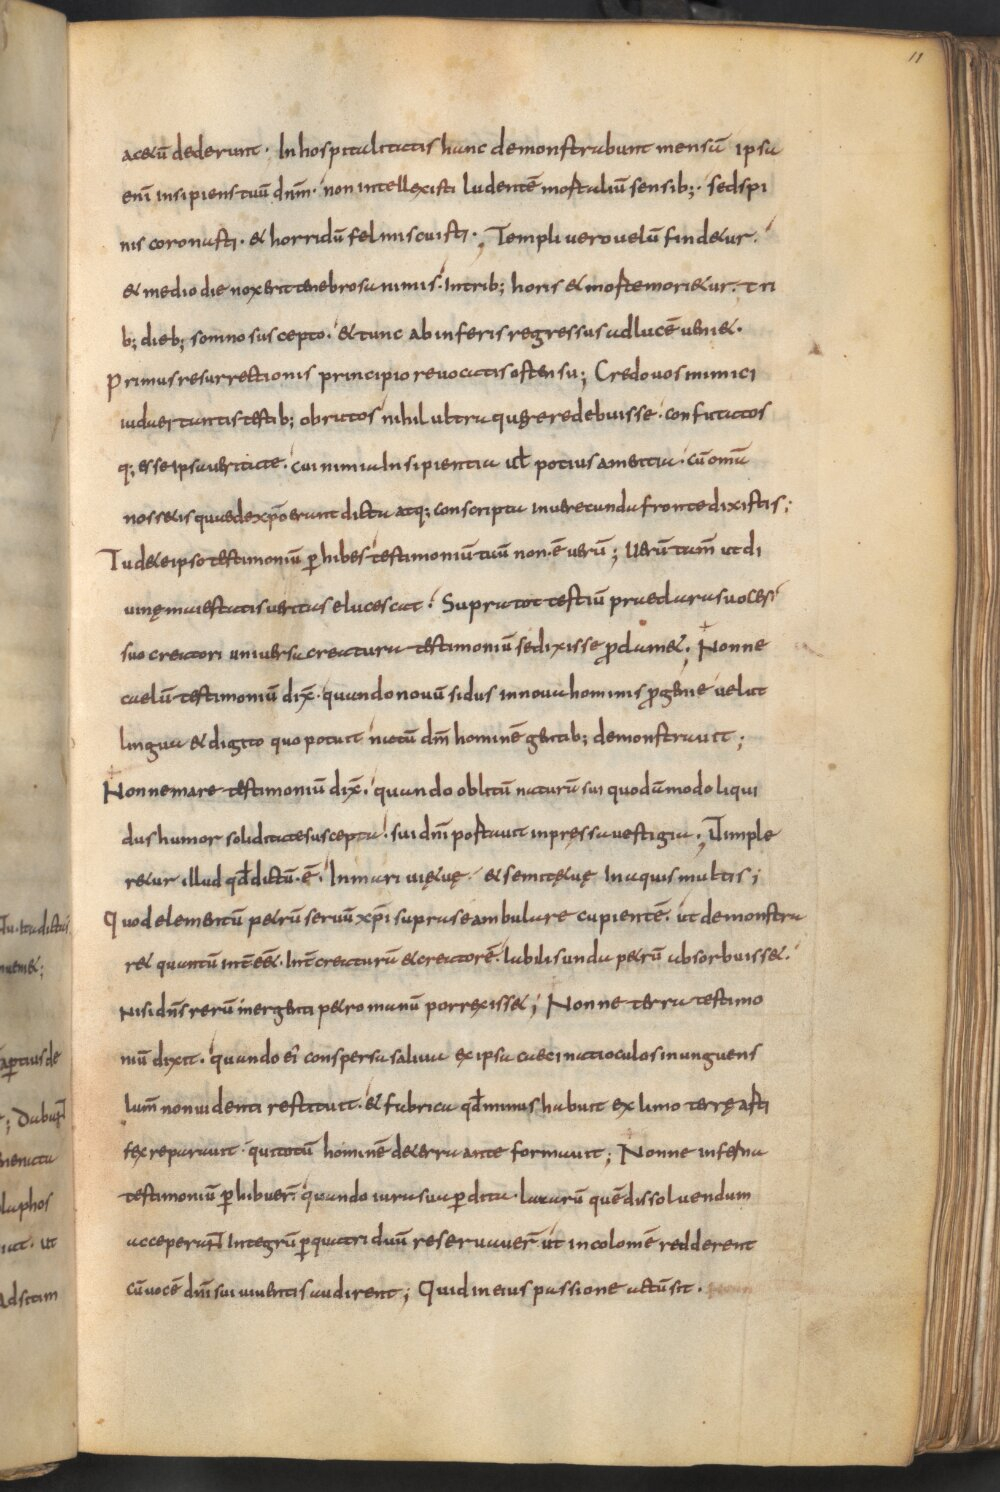 11
acetū dederunt. Inhospitalitatis hanc demonstrabunt mensā ipsa
enī insipiens tuū dnm̄. non intellexisti ludentē mortaliū sensib;. sed spi
nis coronasti. et horridū fel miscuisti; Templi vero velū findetur.
et medio die nox erit tenebrosa nimis. In trib; horis et morte morietur. tri
b; dieb; somno suscepto. et tunc ab inferis regressus ad lucē veniet.
Primus resurrectionis principio revocatis ostensu; Credo vos inimici
iudaei tantis testib; obrutos nihil ultra quęrere debuisse. confutatos
q; esse ipsa veritate. cui nimia insipientia uel potius amentia. cū omīa
nossetis quae de xp̄o erunt dicta atq; conscripta inverecunda fronte dixistis;
Tu de te ipso testimoniū ꝑhibes testimoniū tuū non ·ē· verū; Verū tam̄ ut di
vinę maiestatis veritas elucescat. Supra tot testiū praeclaras voces
suo creatori universa creatura testimoniū se dixisse ꝓclamet; Nonne
caelū testimoniū dix̄. quando novū sidus in nova hominis ꝓgenie velut
lingua et digito quo potuit natū dm̄ hominē gentib; demonstravit;
Nonne mare testimoniū dix̄. quando oblitū naturā sui quodāmodo liqui
dus humor soliditate suscepta. sui dnī portavit inpręssa vestigia; Ut imple
retur illud qd̄ dictū ·ē· In mari vię tuę. et semitę tuę In aquis multis;
Quod elementū petrū servū xp̄i supra se ambulare cupientē. ut demonstra
ret quantū int̄ eēt. Int̄ creaturā et creatorē. labilis unda petrū absorbuisset.
Nisi dn̄s rerū mergenti petro manū porrexisset; Nonne terra testimo
niū dixit. quando eī conspersa saliva ex ipsa caeci nati oculos inunguens
lum̄ non videnti restituit. et fabrica qd̄ minus habuit ex limo terrę arti
fex reparavit. qui totū hominē de terra ante formavit; Nonne inferna
testimoniū ꝑhibuer̄. quando iura sua ꝑdita. lazarū quē dissolvendum
acceperant̄ Integrū ꝑ quatriduū reservaver̄ ut incolomē redderent
cū vocē dnī sui viventis audirent; Quid in eius passione actū sit.